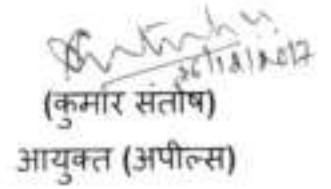 26/12/2017
(कुमार संतोष)
आयुक्त (अपील्स)